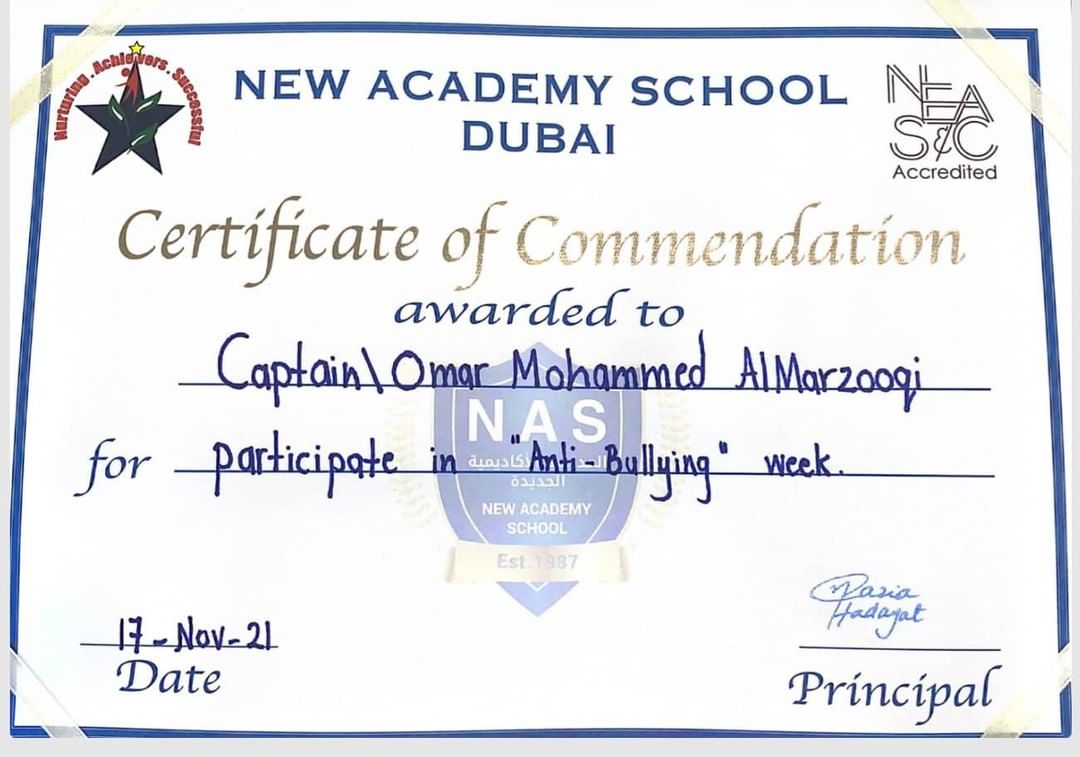 Nurturing . Achievers . Successful
NEW ACADEMY SCHOOL
DUBAI
NEA
S&C
Accredited
Certificate of Commendation
awarded to
Captain\ Omar Mohammed AlMarzooqi
NAS
for participate in "Anti-Bullying" week.
الأكاديمية
الجديدة
NEW ACADEMY
SCHOOL
Est.1987
Hadayat
17-Nov-21
Date
Principal